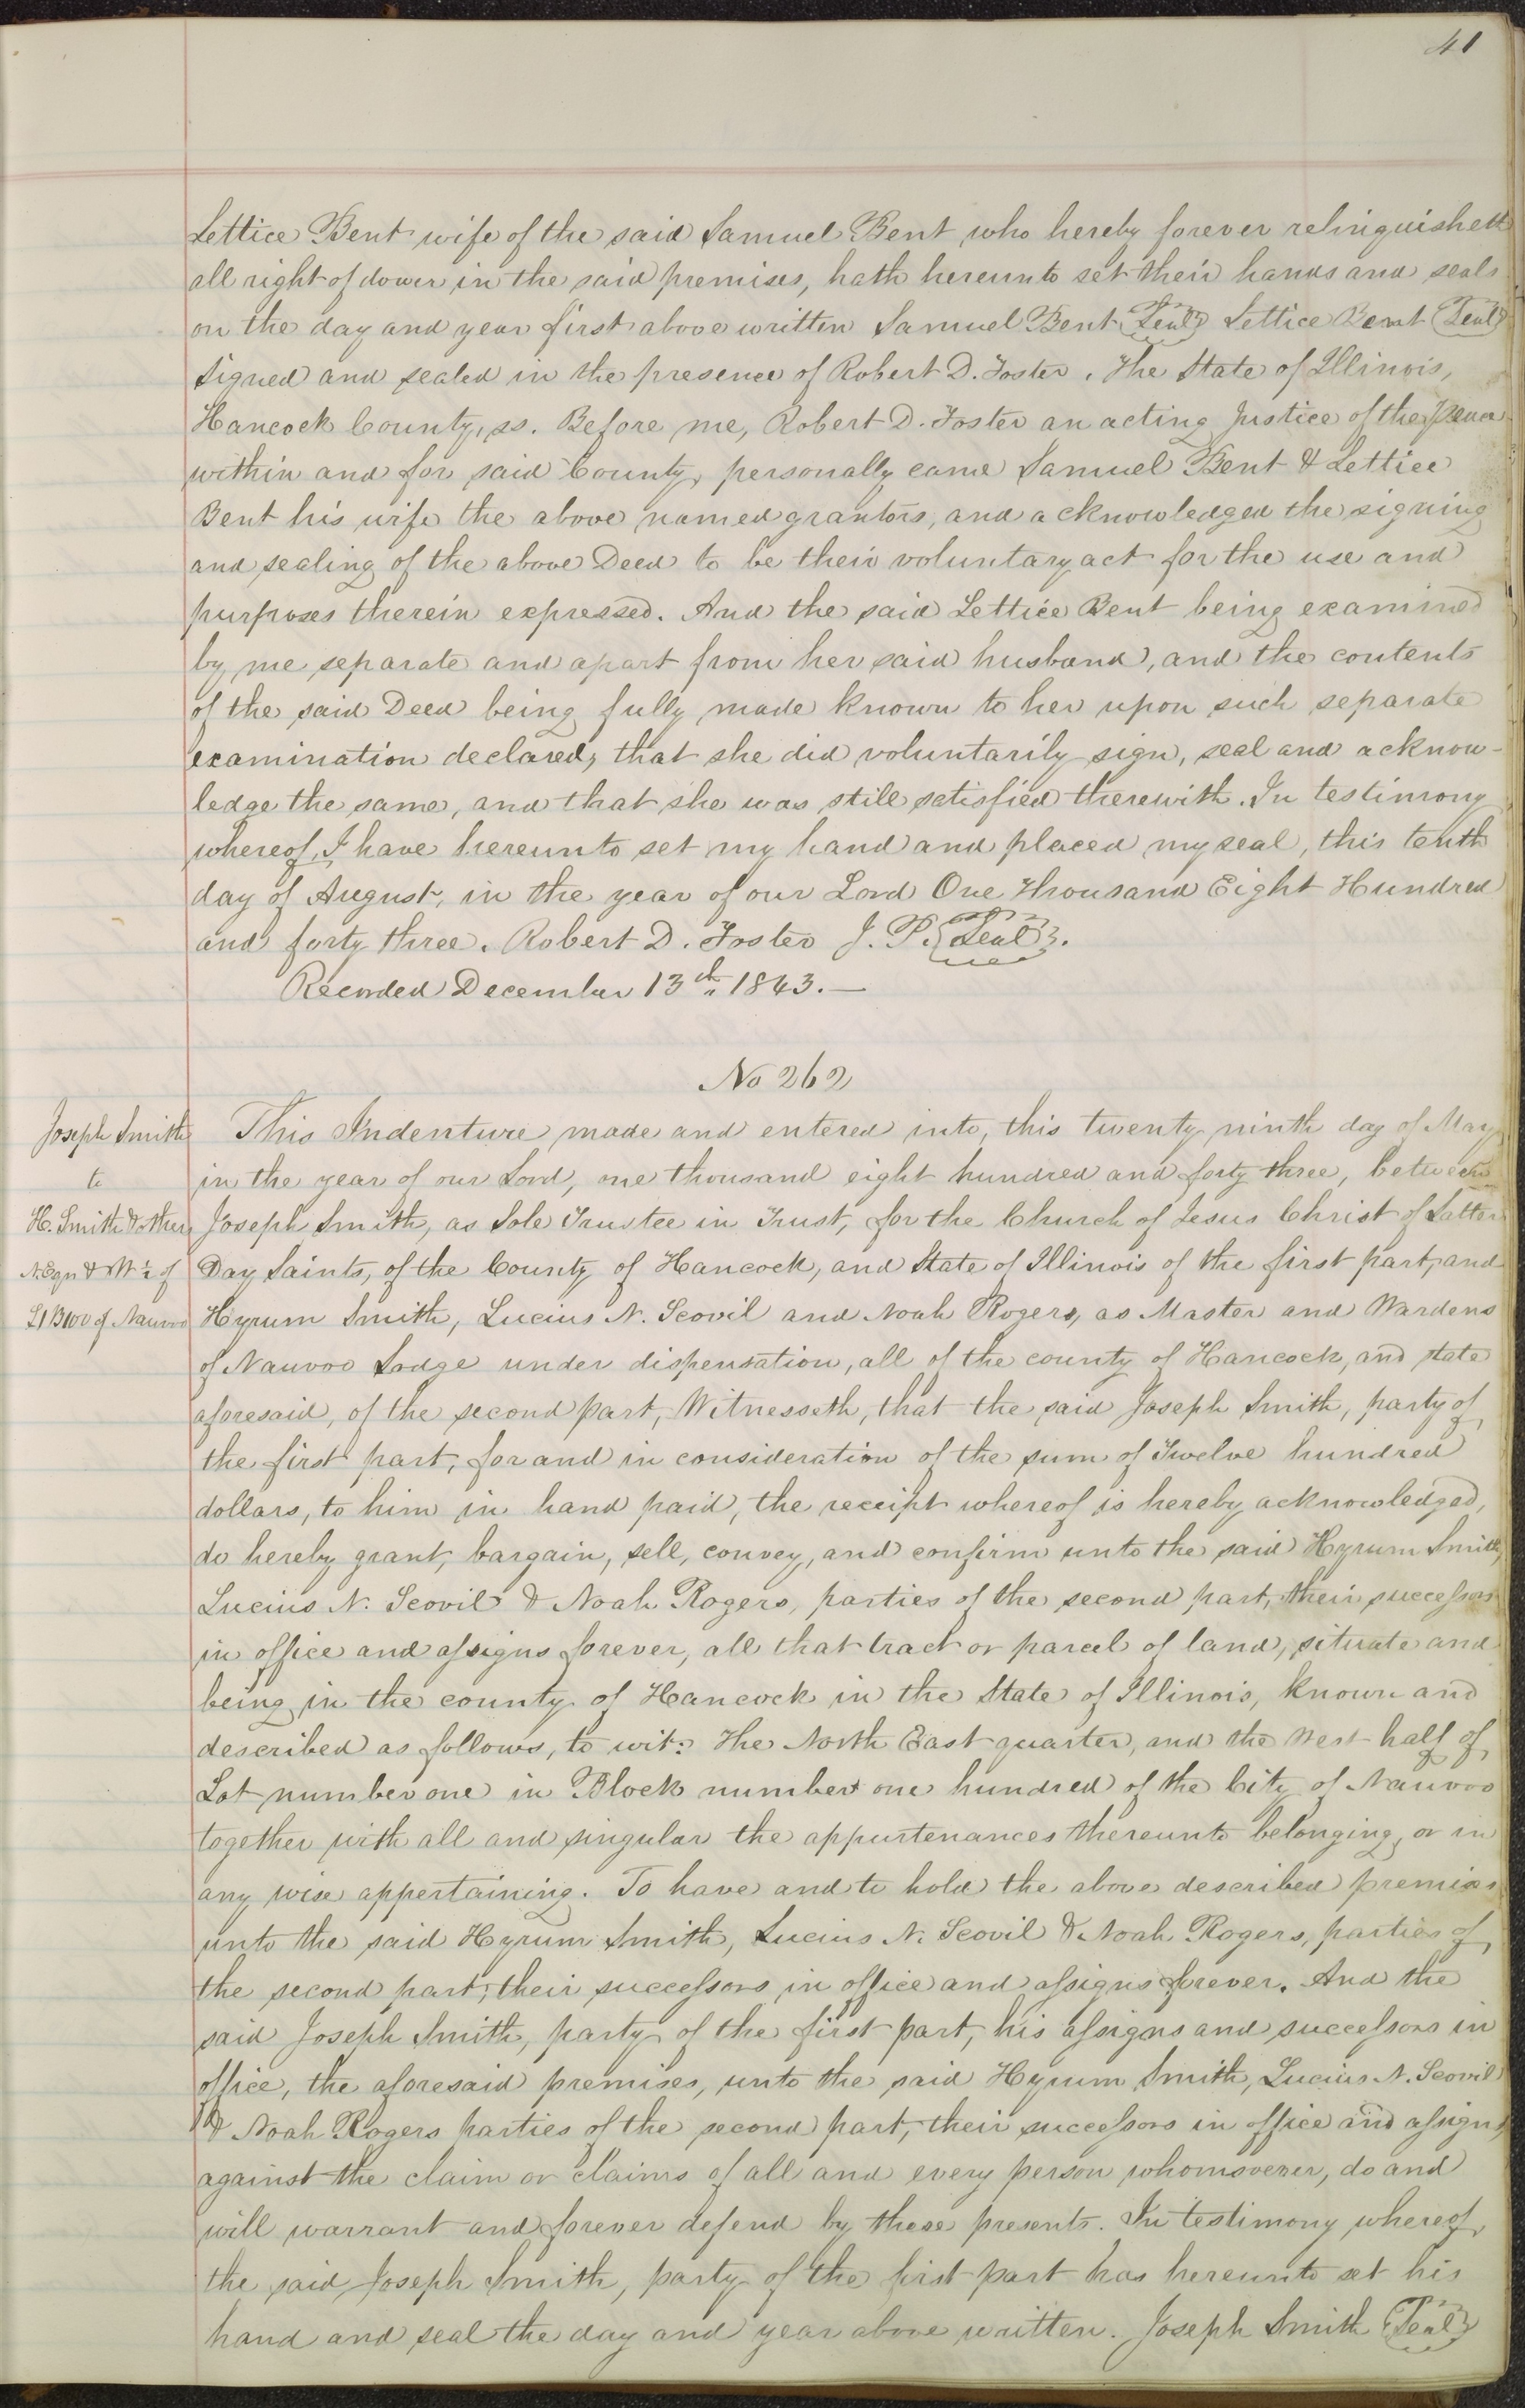 41
Lettice Bent wife of the said Samuel Bent who hereby forever relinquisheth
all right of dower in the said premises, hath hereunto set their hands and seals
on the day and year first above written Samuel Bent Seal Lettice Bent Seal
Signed and sealed in the presence of Robert D. Foster. The State of Illinois,
Hancock County, ss. Before me, Robert D. Foster an acting Justice of the Peace
within and for said County, personally came Samuel Bent & Lettice
Bent his wife the above named grantors, and acknowledged the signing
and sealing of the above Deed to be their voluntary act for the use and
purposes therein expressed. And the said Lettice Bent being examined
by me separate and apart from her said husband, and the contents
of the said Deed being fully made known to her upon such separate
examination declared, that she did voluntarily sign, seal and acknow-
ledge the same, and that she was still satisfied therewith. In testimony
whereof, I have hereunto set my hand and placed my seal, this tenth
day of August, in the year of our Lord One Thousand Eight Hundred
and forty three. Robert D. Foster J. P. Seal.
Recorded December 13th, 1843.—
No 262
Joseph Smith
to
H. Smith & others
N.E qr & W ½ of
L1 B100 of Nauvoo
This Indenture made and entered into, this twenty ninth day of May
in the year of our Lord, one thousand eight hundred and forty three, between
Joseph Smith, as Sole Trustee in Trust, for the Church of Jesus Christ of Latter
Day Saints, of the County of Hancock, and State of Illinois of the first part, and
Hyrum Smith, Lucius N. Scovil and Noah Rogers, as Master and Wardens
of Nauvoo Lodge under dispensation, all of the county of Hancock, and state
aforesaid, of the second part, Witnesseth, that the said Joseph Smith, party of
the first part, for and in consideration of the sum of Twelve hundred
dollars, to him in hand paid, the receipt whereof is hereby acknowledged,
do hereby grant, bargain, sell, convey, and confirm unto the said Hyrum Smith,
Lucius N. Scovil & Noah Rogers, parties of the second part, their successors
in office and assigns forever, all that tract or parcel of land, situate and
being in the county of Hancock in the State of Illinois, known and
described as follows, to wit: The North East quarter, and the West half of
Lot number one in Block number one hundred of the City of Nauvoo
together with all and singular the appurtenances thereunto belonging, or in
any wise appertaining. To have and to hold the above described premises
unto the said Hyrum Smith, Lucius N. Scovil & Noah Rogers, parties of
the second part, their successors in office and assigns forever. And the
said Joseph Smith, party of the first part, his assigns and successors in
office, the aforesaid premises, unto the said Hyrum Smith, Lucius N. Scovil
& Noah Rogers parties of the second part, their successors in office and assigns,
against the claim or claims of all and every person whomsoever, do and
will warrant and forever defend by these presents. In testimony whereof,
the said Joseph Smith, party of the first part has hereunto set his
hand and seal the day and year above written. Joseph Smith Seal